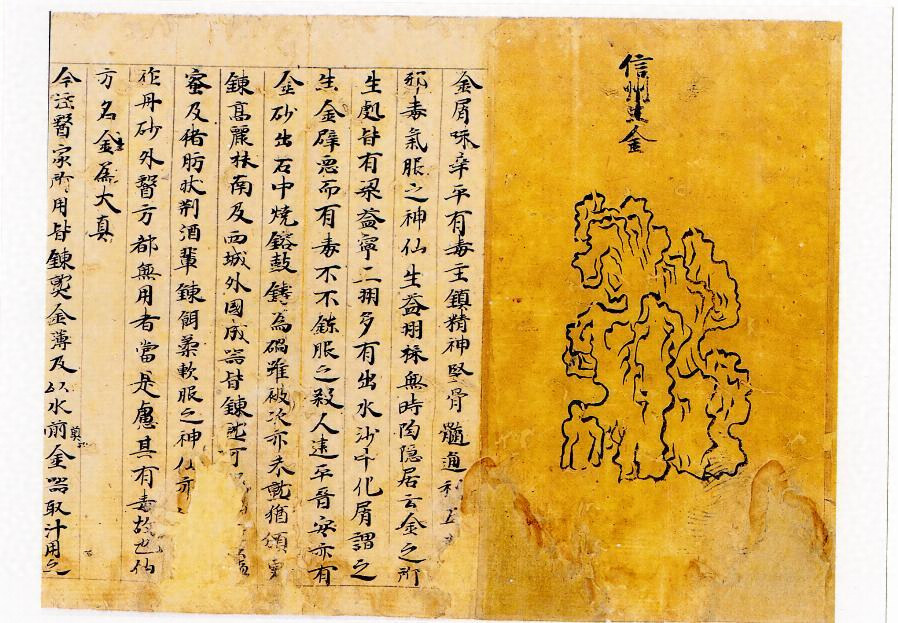 信州生金
金屑味辛平有毒主鎮精神堅骨髓通利五
邪毒氣服之神仙生益州採無時陶隱居云金之所
生處皆有梁益寧二州多有出水沙中化屑謂之
生金辟惡而有毒不不鍊服之殺人建平晉安亦有
金砂出石中燒鎔鼓鑄為碢雖被火亦未熟猶須更
鍊高麗扶南及西城外國成器皆鍊熟可
蜜及猪肪牡荆酒輩鍊餌柔軟服之神仙亦
作丹砂外醫方都無用者當是慮其有毒故也仙
方名金為大真
今注醫家所用皆鍊熟金薄及以水煎金器取汁用之